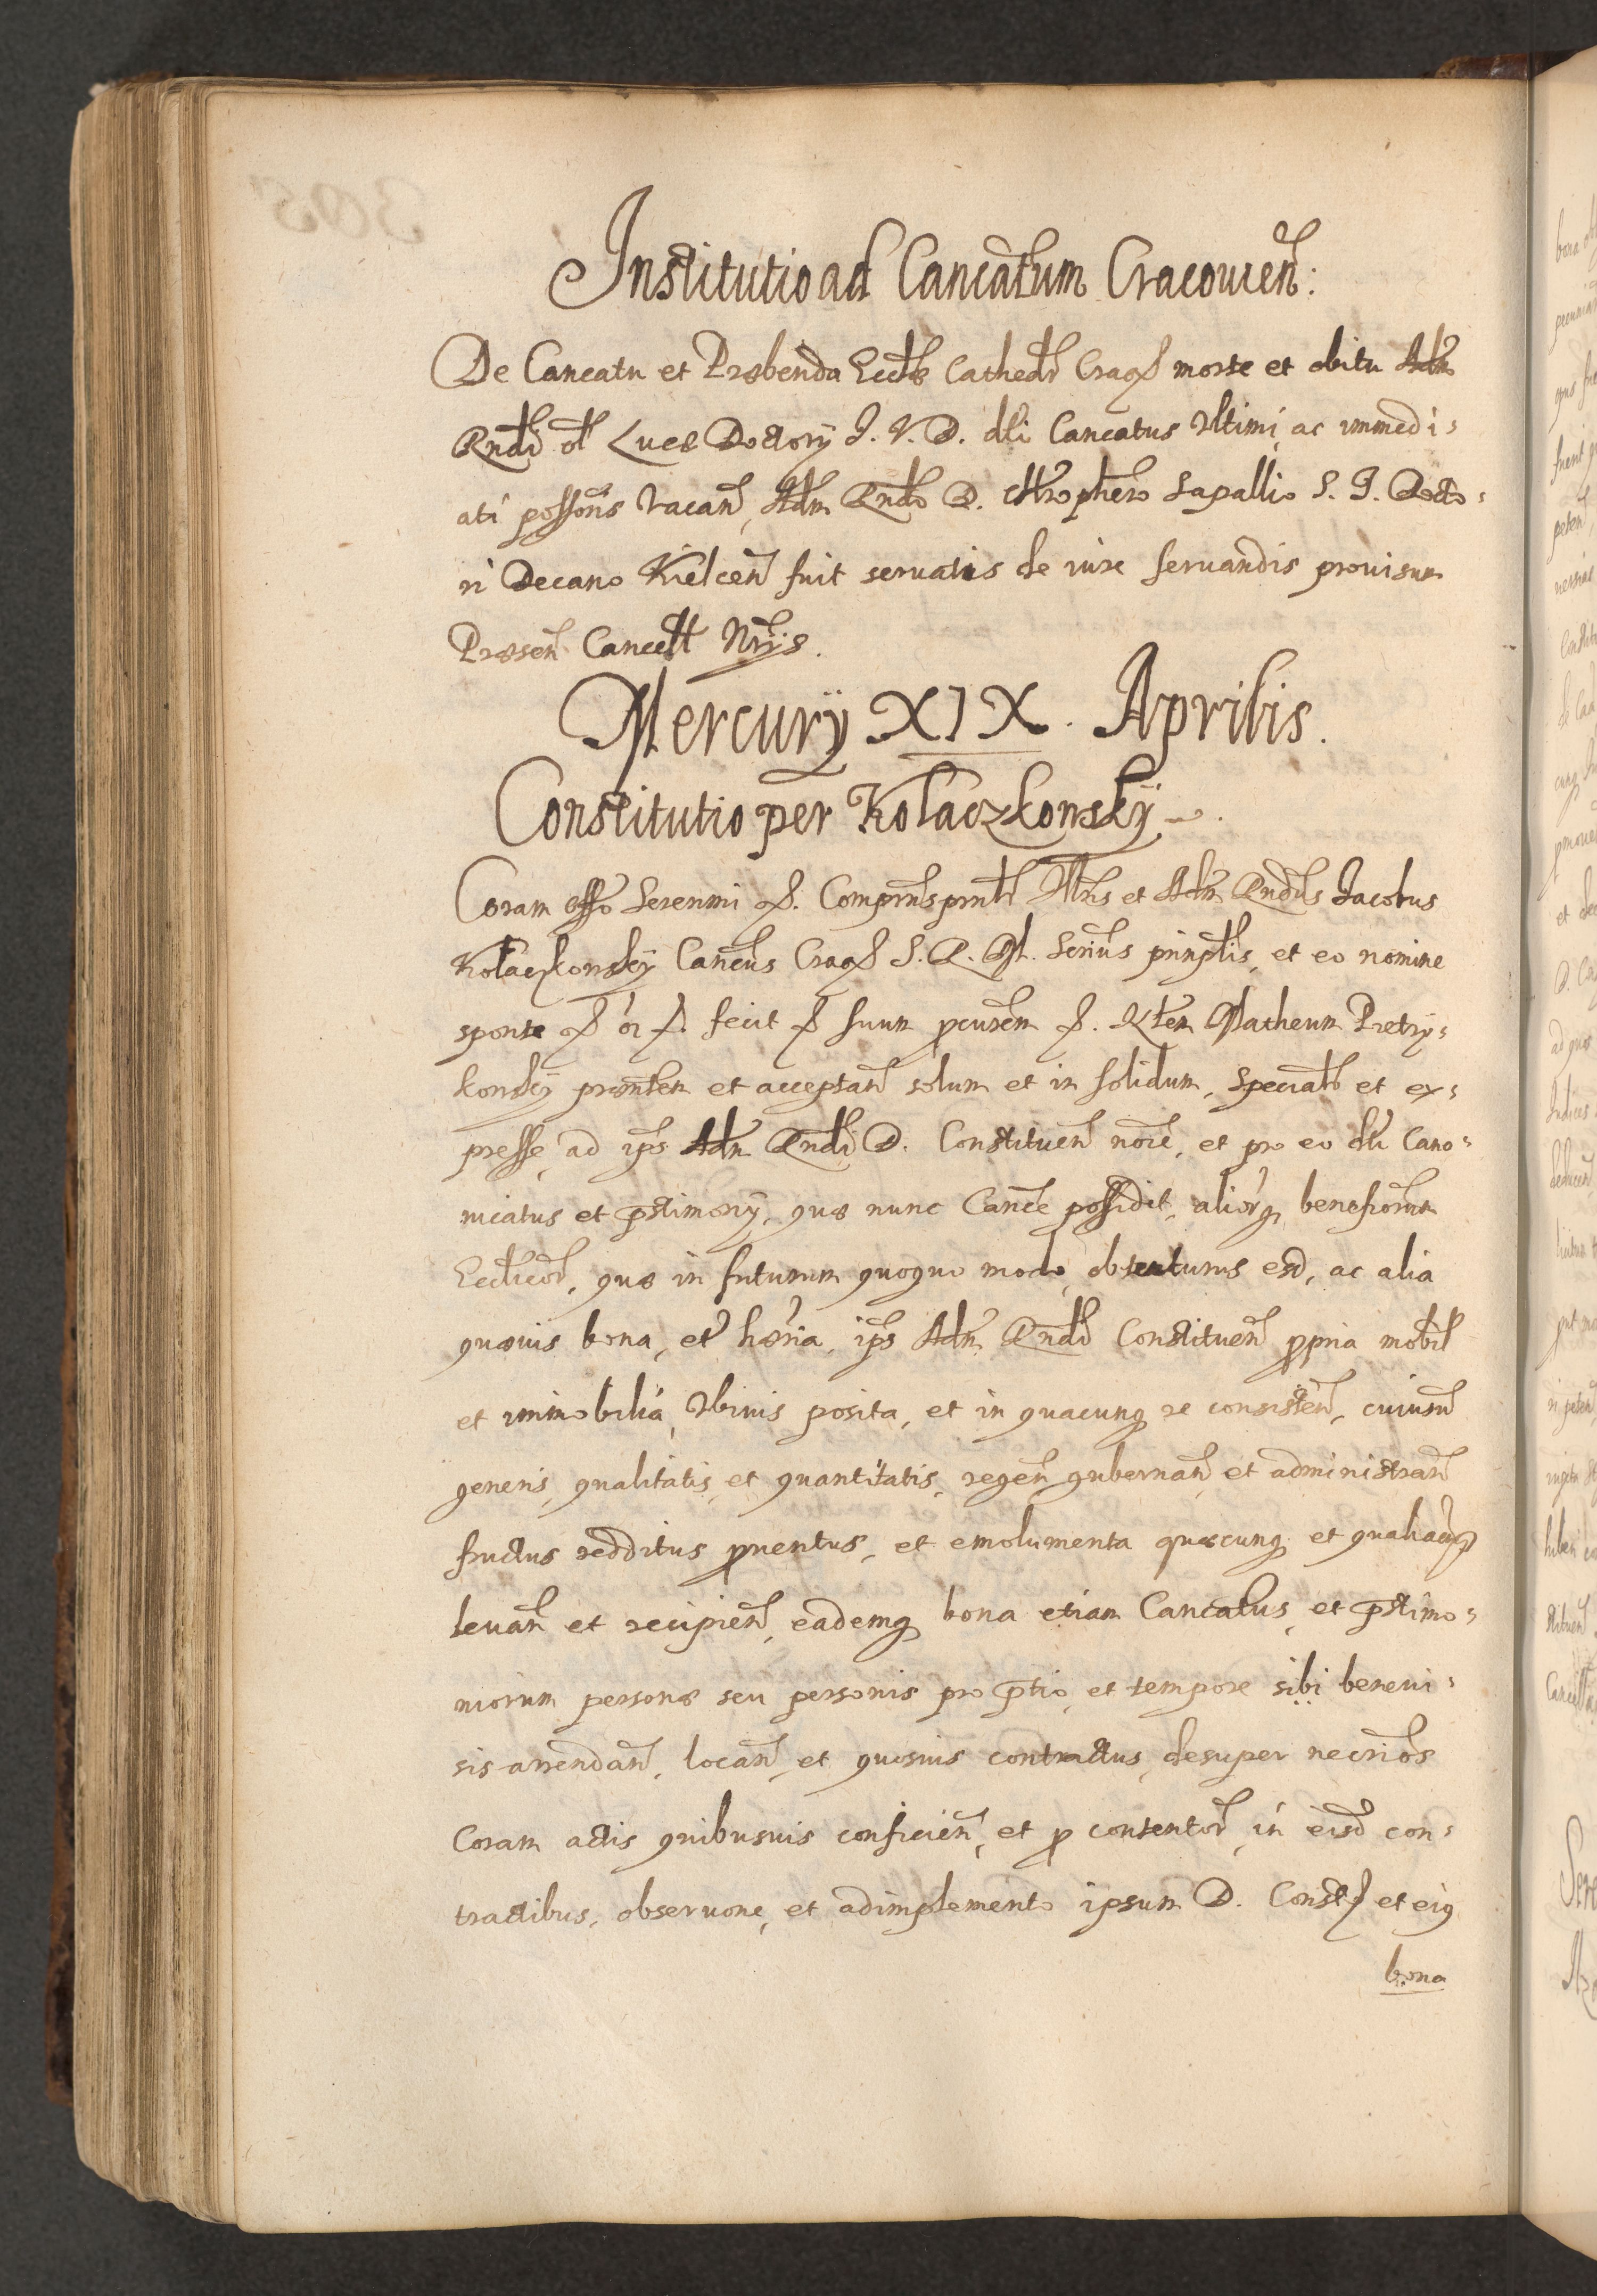 Institutio ad Cancatum Cracouien:
De Cancatu et Præbenda Ecctæ Cathedr Crac morte et obitu Adm
Rndi ol Lucæ Doctorÿ J. V. D. dti Cancatus Vltimi, ac immedi=
ati possoris vacan, Adm Rndo D. Sapallio S. J. Docto=
ri Decano Kielcen fuit seruatis de iure seruandis prouisum
Præsen Cancell Nrijs.
Mercurÿ XIX. Aprilis.
Constitutio per Kołaczkonskÿ
Coram offo Serenmi &. Comprns prntr Illris et Adm Rndus Jacobus
Kołaczkonskÿ Cancus Crac S. R. M. Serius prinplis, et eo nomine
sponte & or &. fecit & suum pcurem &. Matheum Pietrÿ=
konskÿ præntem et acceptan solum et in solidum, speciatr et ex=
presse, ad ips Adm Rndi D. Constituen noie, et pro eo dti Cano=
nicatus et pstimonÿ, quæ nunc Cance possidet, aliorq beneficiorum
Ecclicor, quæ in futurum quoquo modo, obtenturus esd, ac alia
quæuis bona, et hæria, ips Adm Rndi Constituen ppria mobil
et immobilia, Vbiuis posita, et in quacunq re consisten, cuiusuis
generis, qualitatis, et quantitatis, regen, gubernan, et administran
fructus redditus puentus, et emolumenta quæcunq et qualiacunq
leuan et recipien, eademq bona etiam Cancatus, et pstimo=
niorum personæ seu personis pro ptio, et tempore sibi beneui=
sis arrendan, locan, et quosuis contractus, desuper necrios
Coram actis quibusuis conficien, et p contentor, in eisd con=
tractibus, obseruone, et adimplemento ipsum D. Constt et eiq
bona